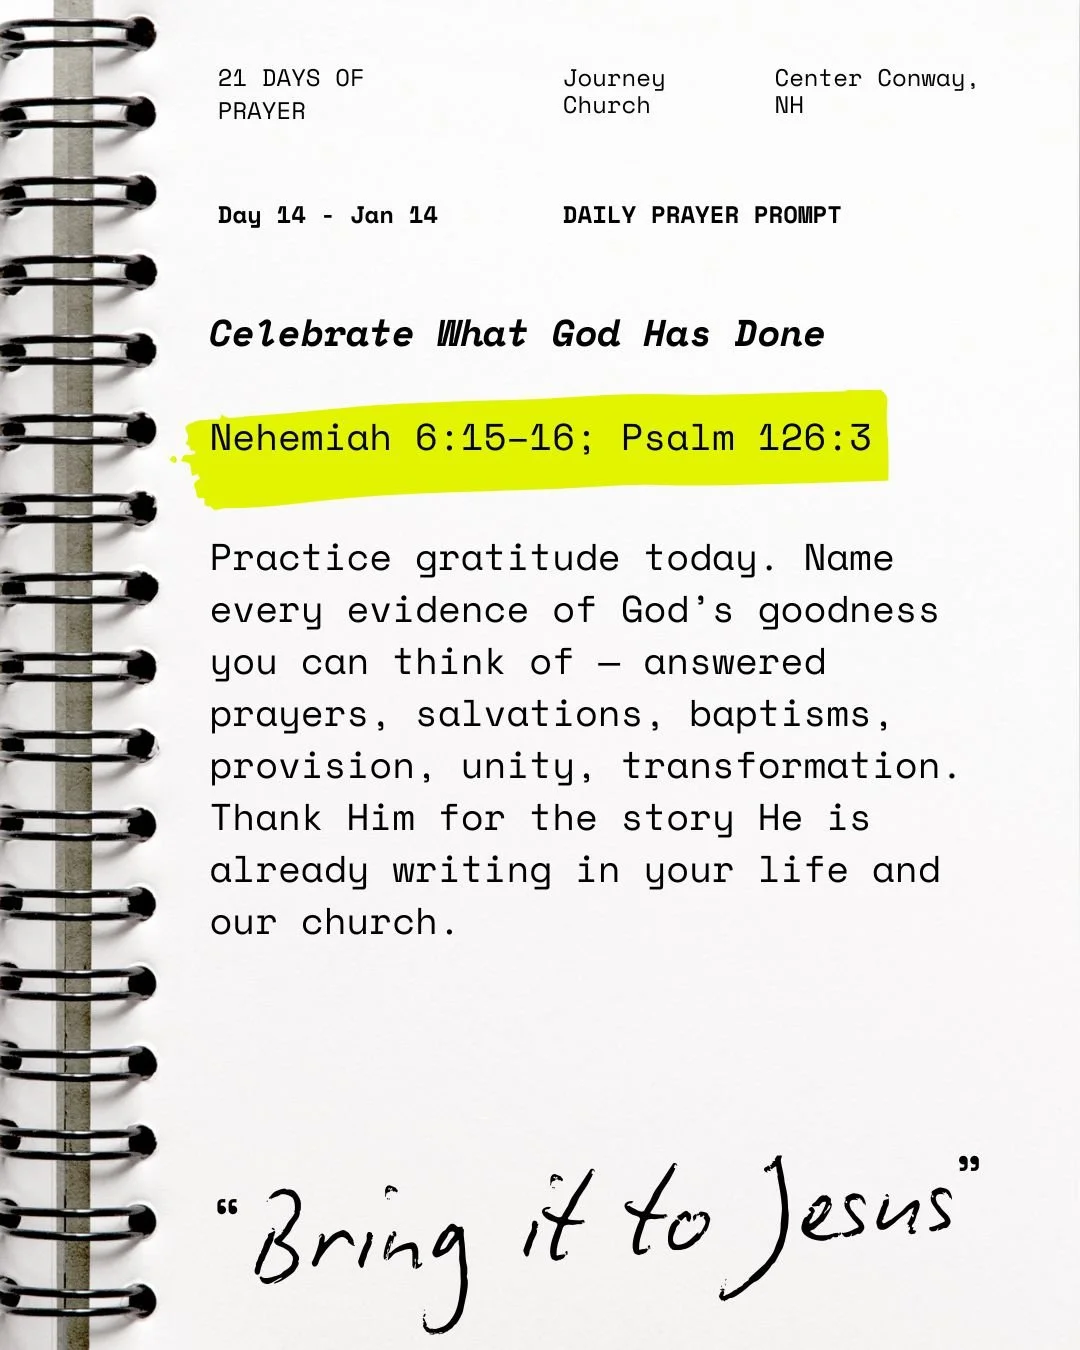 21 DAYS OF
PRAYER
Journey
Church
Center Conway,
NH
Day 14 - Jan 14
DAILY PRAYER PROMPT
Celebrate What God Has Done
Nehemiah 6:15–16; Psalm 126:3
Practice gratitude today. Name
every evidence of God’s goodness
you can think of — answered
prayers, salvations, baptisms,
provision, unity, transformation.
Thank Him for the story He is
already writing in your life and
our church.
“Bring it to Jesus”